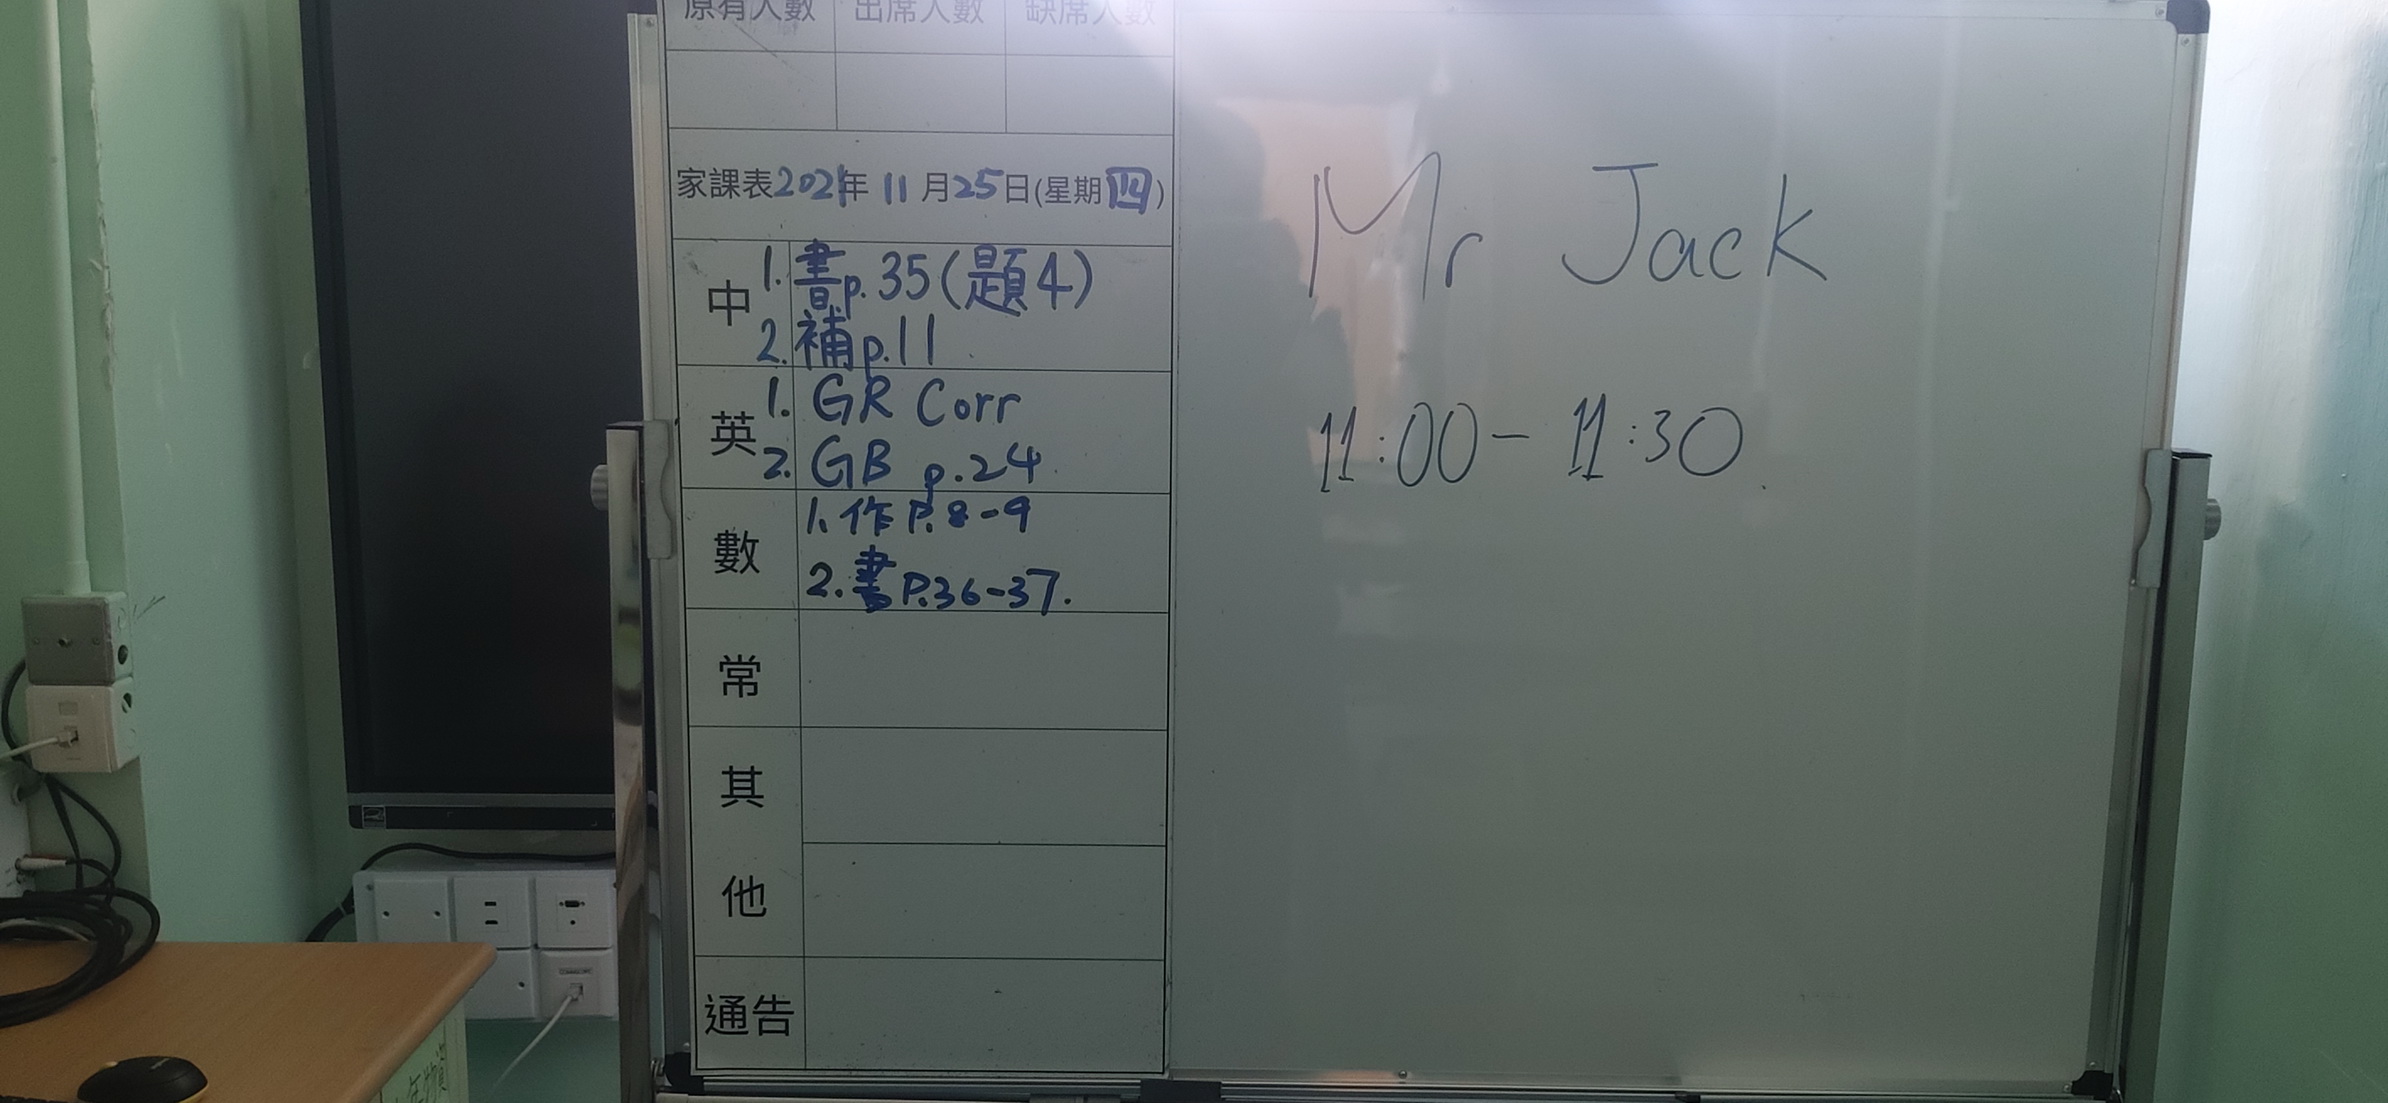 原有人數 出席人數 缺席人數
家課表2021年 11 月25日(星期四)
中 1. 書p.35(題4)
2. 補p.11
英 1. GR Corr
2. GB p.24
數 1. 作P.8-9
2. 書P.36-37.
常
其
他
通告
Mr Jack
11:00- 11:30